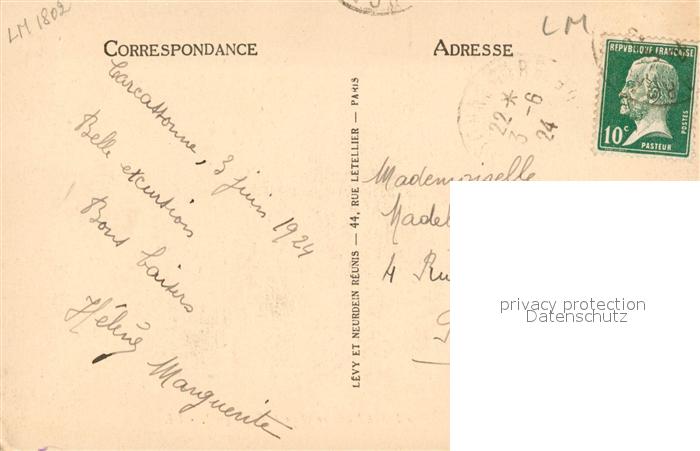 LM 1802
LM
CORRESPONDANCE
ADRESSE
REPVBLIQVE FRANÇAISE
10c
POSTES
PASTEUR
22*
3-6
24
Carcassonne, 3 juin 1924
Belle excursion
Bons baisers
Hélène
Marguerite
LÉVY ET NEURDEIN RÉUNIS — 44, RUE LETELLIER — PARIS
Mademoiselle
Madel
4 Ru
privacy protection
Datenschutz